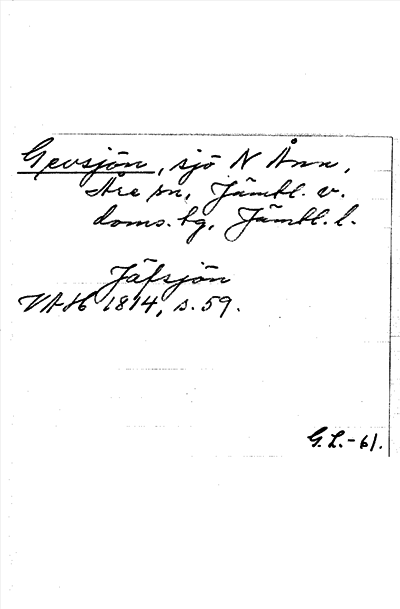 Gevsjön, sjö N Ånn,
Åre sn, Jämtl. v.
doms. tg, Jämtl. l.
Jäfsjön
VAH 1814, s. 59.
G.L.-61.